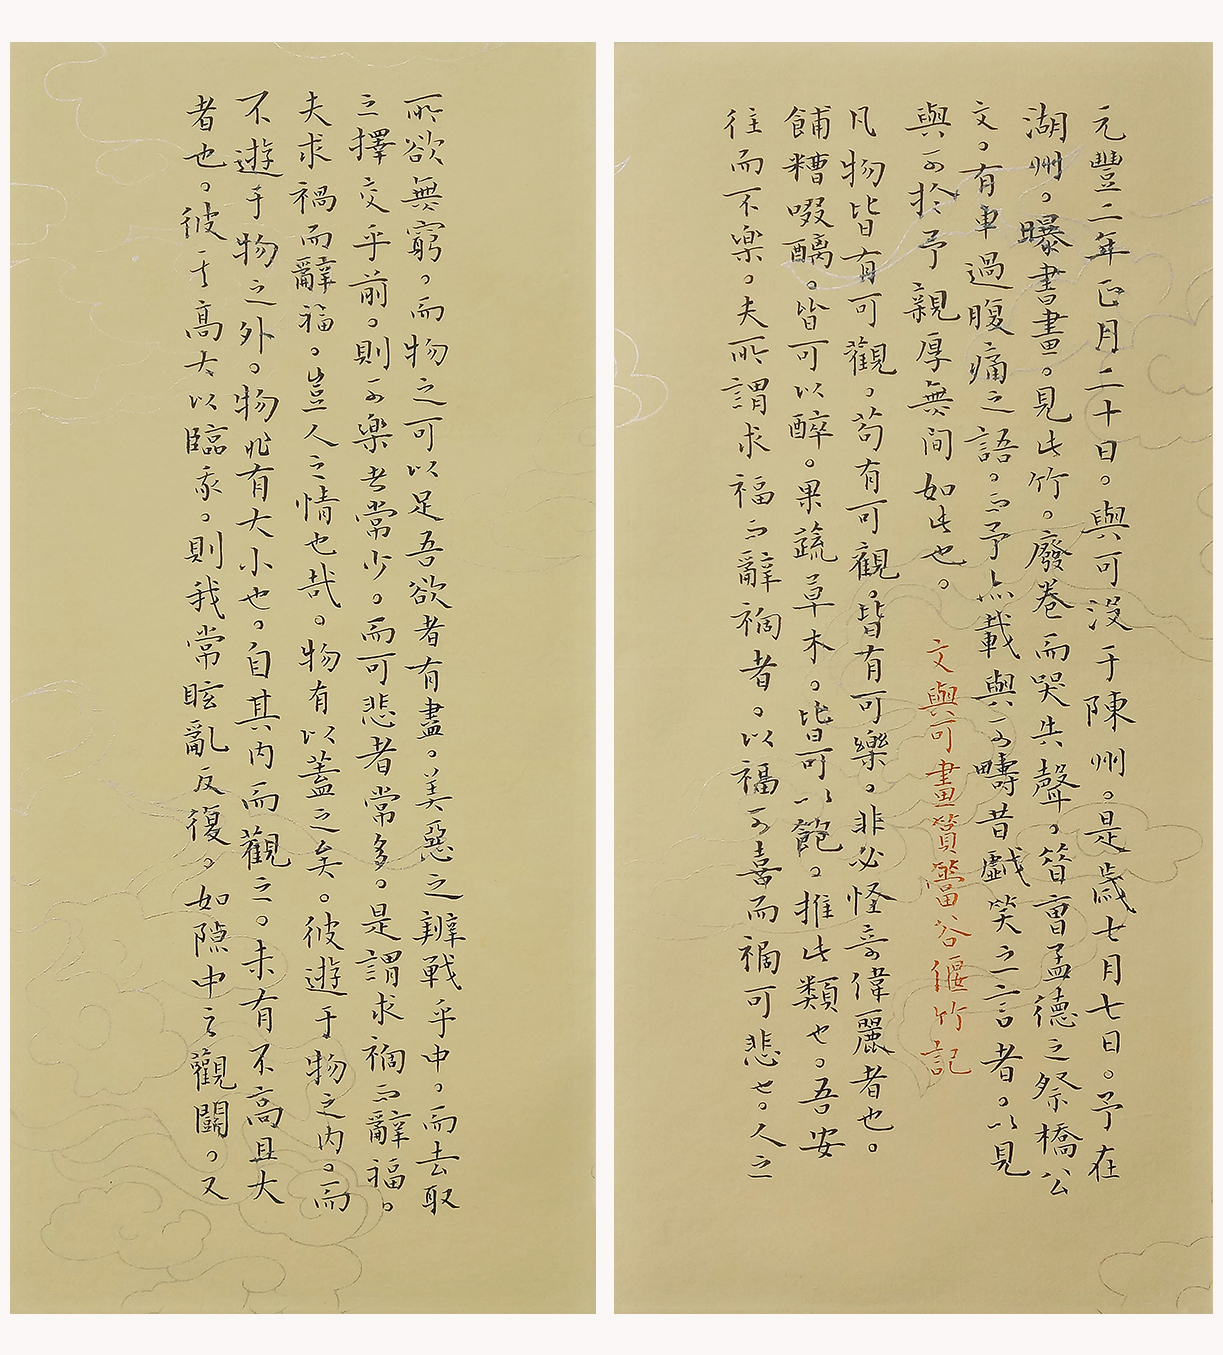 元豐二年正月二十日。與可沒于陳州。是歲七月七日。予在
湖州。曝書畫。見此竹。廢卷而哭失聲。昔曹孟德之祭橋公
文。有車過腹痛之語。而予亦載與可疇昔戲笑之言者。以見
與可於予親厚無間如此也。
文與可畫篔簹谷偃竹記
凡物皆有可觀。苟有可觀。皆有可樂。非必怪奇偉麗者也。
餔糟啜醨。皆可以醉。果蔬草木。皆可以飽。推此類也。吾安
往而不樂。夫所謂求福而辭禍者。以福可喜而禍可悲也。人之
所欲無窮。而物之可以足吾欲者有盡。美惡之辨戰乎中。而去取
之擇交乎前。則可樂者常少。而可悲者常多。是謂求禍而辭福。
夫求禍而辭福。豈人之情也哉。物有以蓋之矣。彼遊于物之內。而
不遊于物之外。物非有大小也。自其內而觀之。未有不高且大
者也。彼于高大以臨我。則我常眩亂反復。如隙中之觀鬬。又